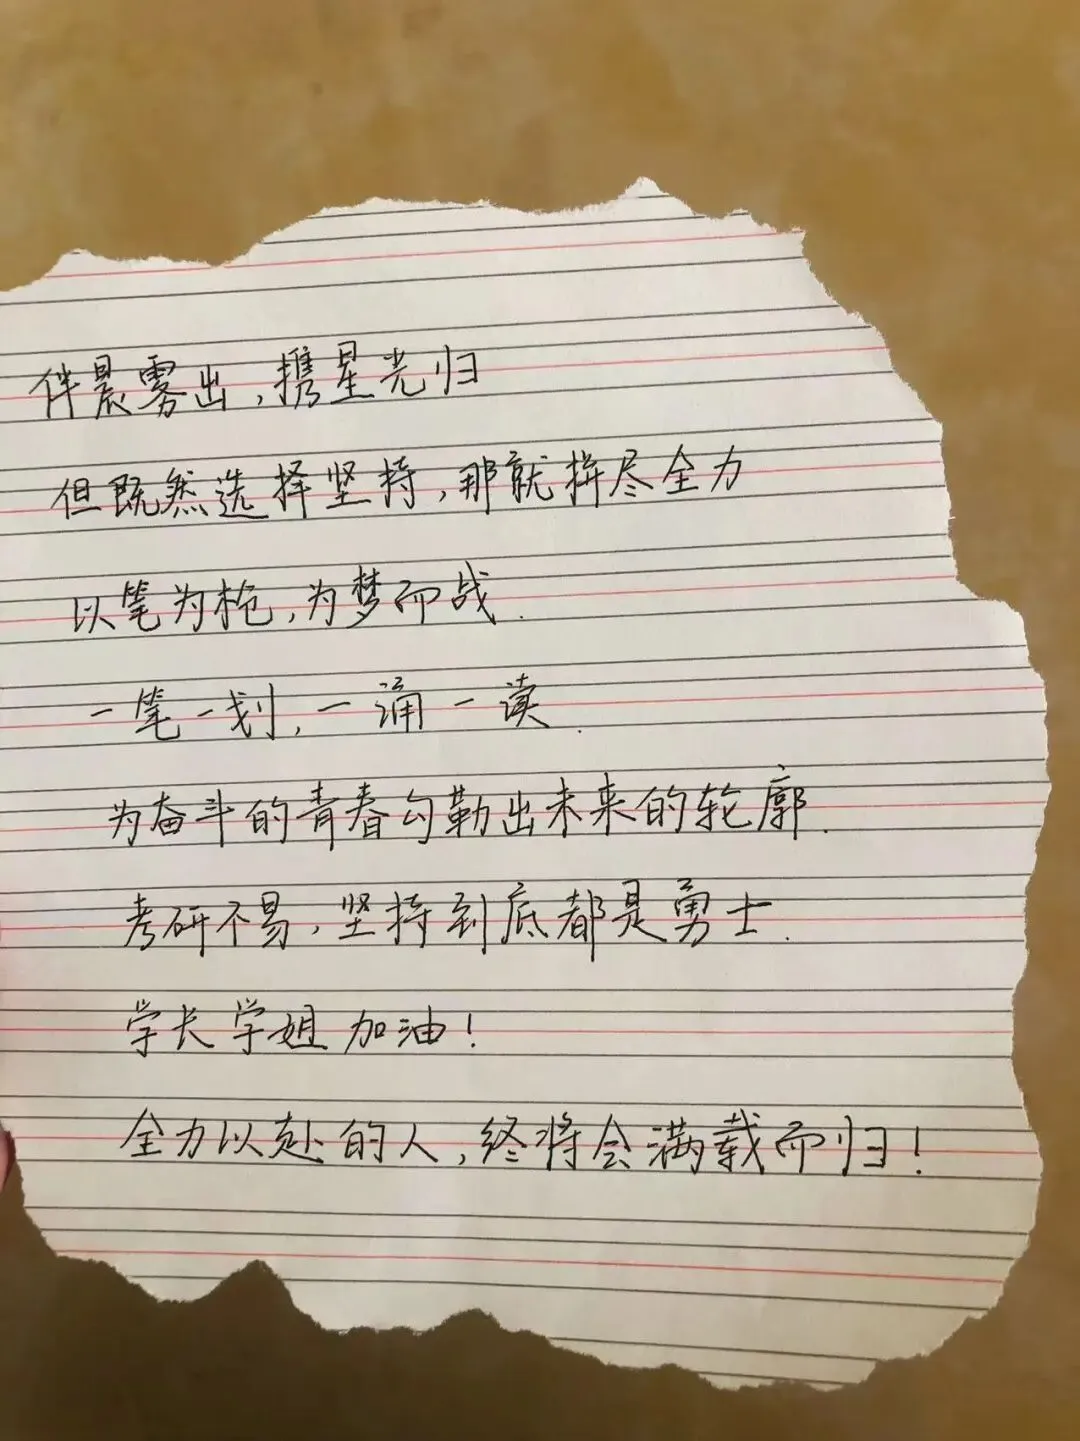 伴晨雾出，携星光归
但既然选择坚持，那就拼尽全力
以笔为枪，为梦而战.
一笔一划，一诵一读.
为奋斗的青春勾勒出未来的轮廓.
考研不易，坚持到底都是勇士.
学长学姐加油！
全力以赴的人，终将会满载而归！